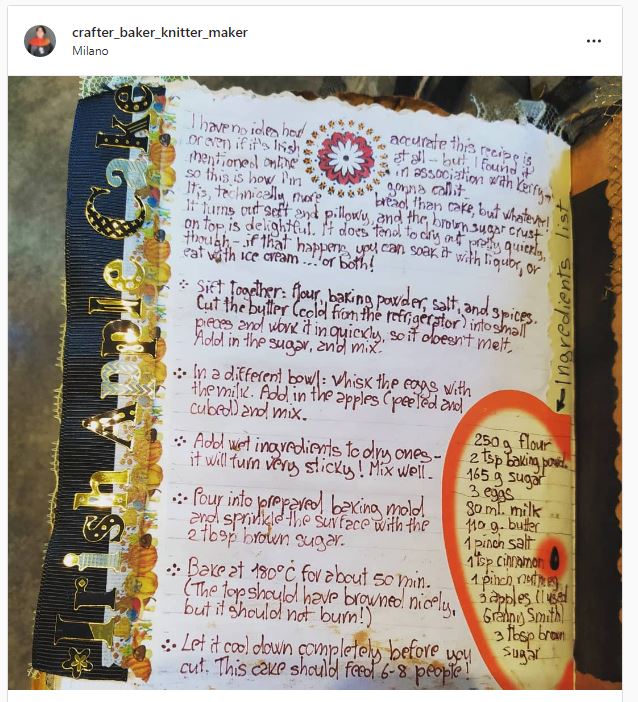 crafter_baker_knitter_maker
Milano
Irish Apple Cake
I have no idea how accurate this recipe is
or even if it's Irish at all - but I found it
mentioned online in association with Kerry -
so this is how I'm gonna call it.
It is, technically, more bread than cake, but whatever!
It turns out soft and pillowy, and the brown sugar crust
on top is delightful. It does tend to dry out pretty quickly,
though - if that happens, you can soak it with liquor, or
eat with ice cream ... or both!
Sift together: flour, baking powder, salt, and spices.
Cut the butter (cold from the refrigerator) into small
pieces and work it in quickly, so it doesn't melt.
Add in the sugar, and mix.
In a different bowl: Whisk the eggs with
the milk. Add in the apples (peeled and
cubed) and mix.
Add wet ingredients to dry ones -
it will turn very sticky! Mix well.
Pour into prepared baking mold
and sprinkle the surface with the
2 tbsp brown sugar.
Bake at 180°C for about 50 min.
(The top should have browned nicely,
but it should not burn!)
Let it cool down completely before you
cut. This cake should feed 6-8 people!
Ingredients list
250 g flour
2 tsp baking powd.
165 g sugar
3 eggs
80 ml milk
110 g. butter
1 pinch salt
1 tsp cinnamon
1 pinch nutmeg
3 apples (I used
Granny Smith)
3 tbsp brown
sugar